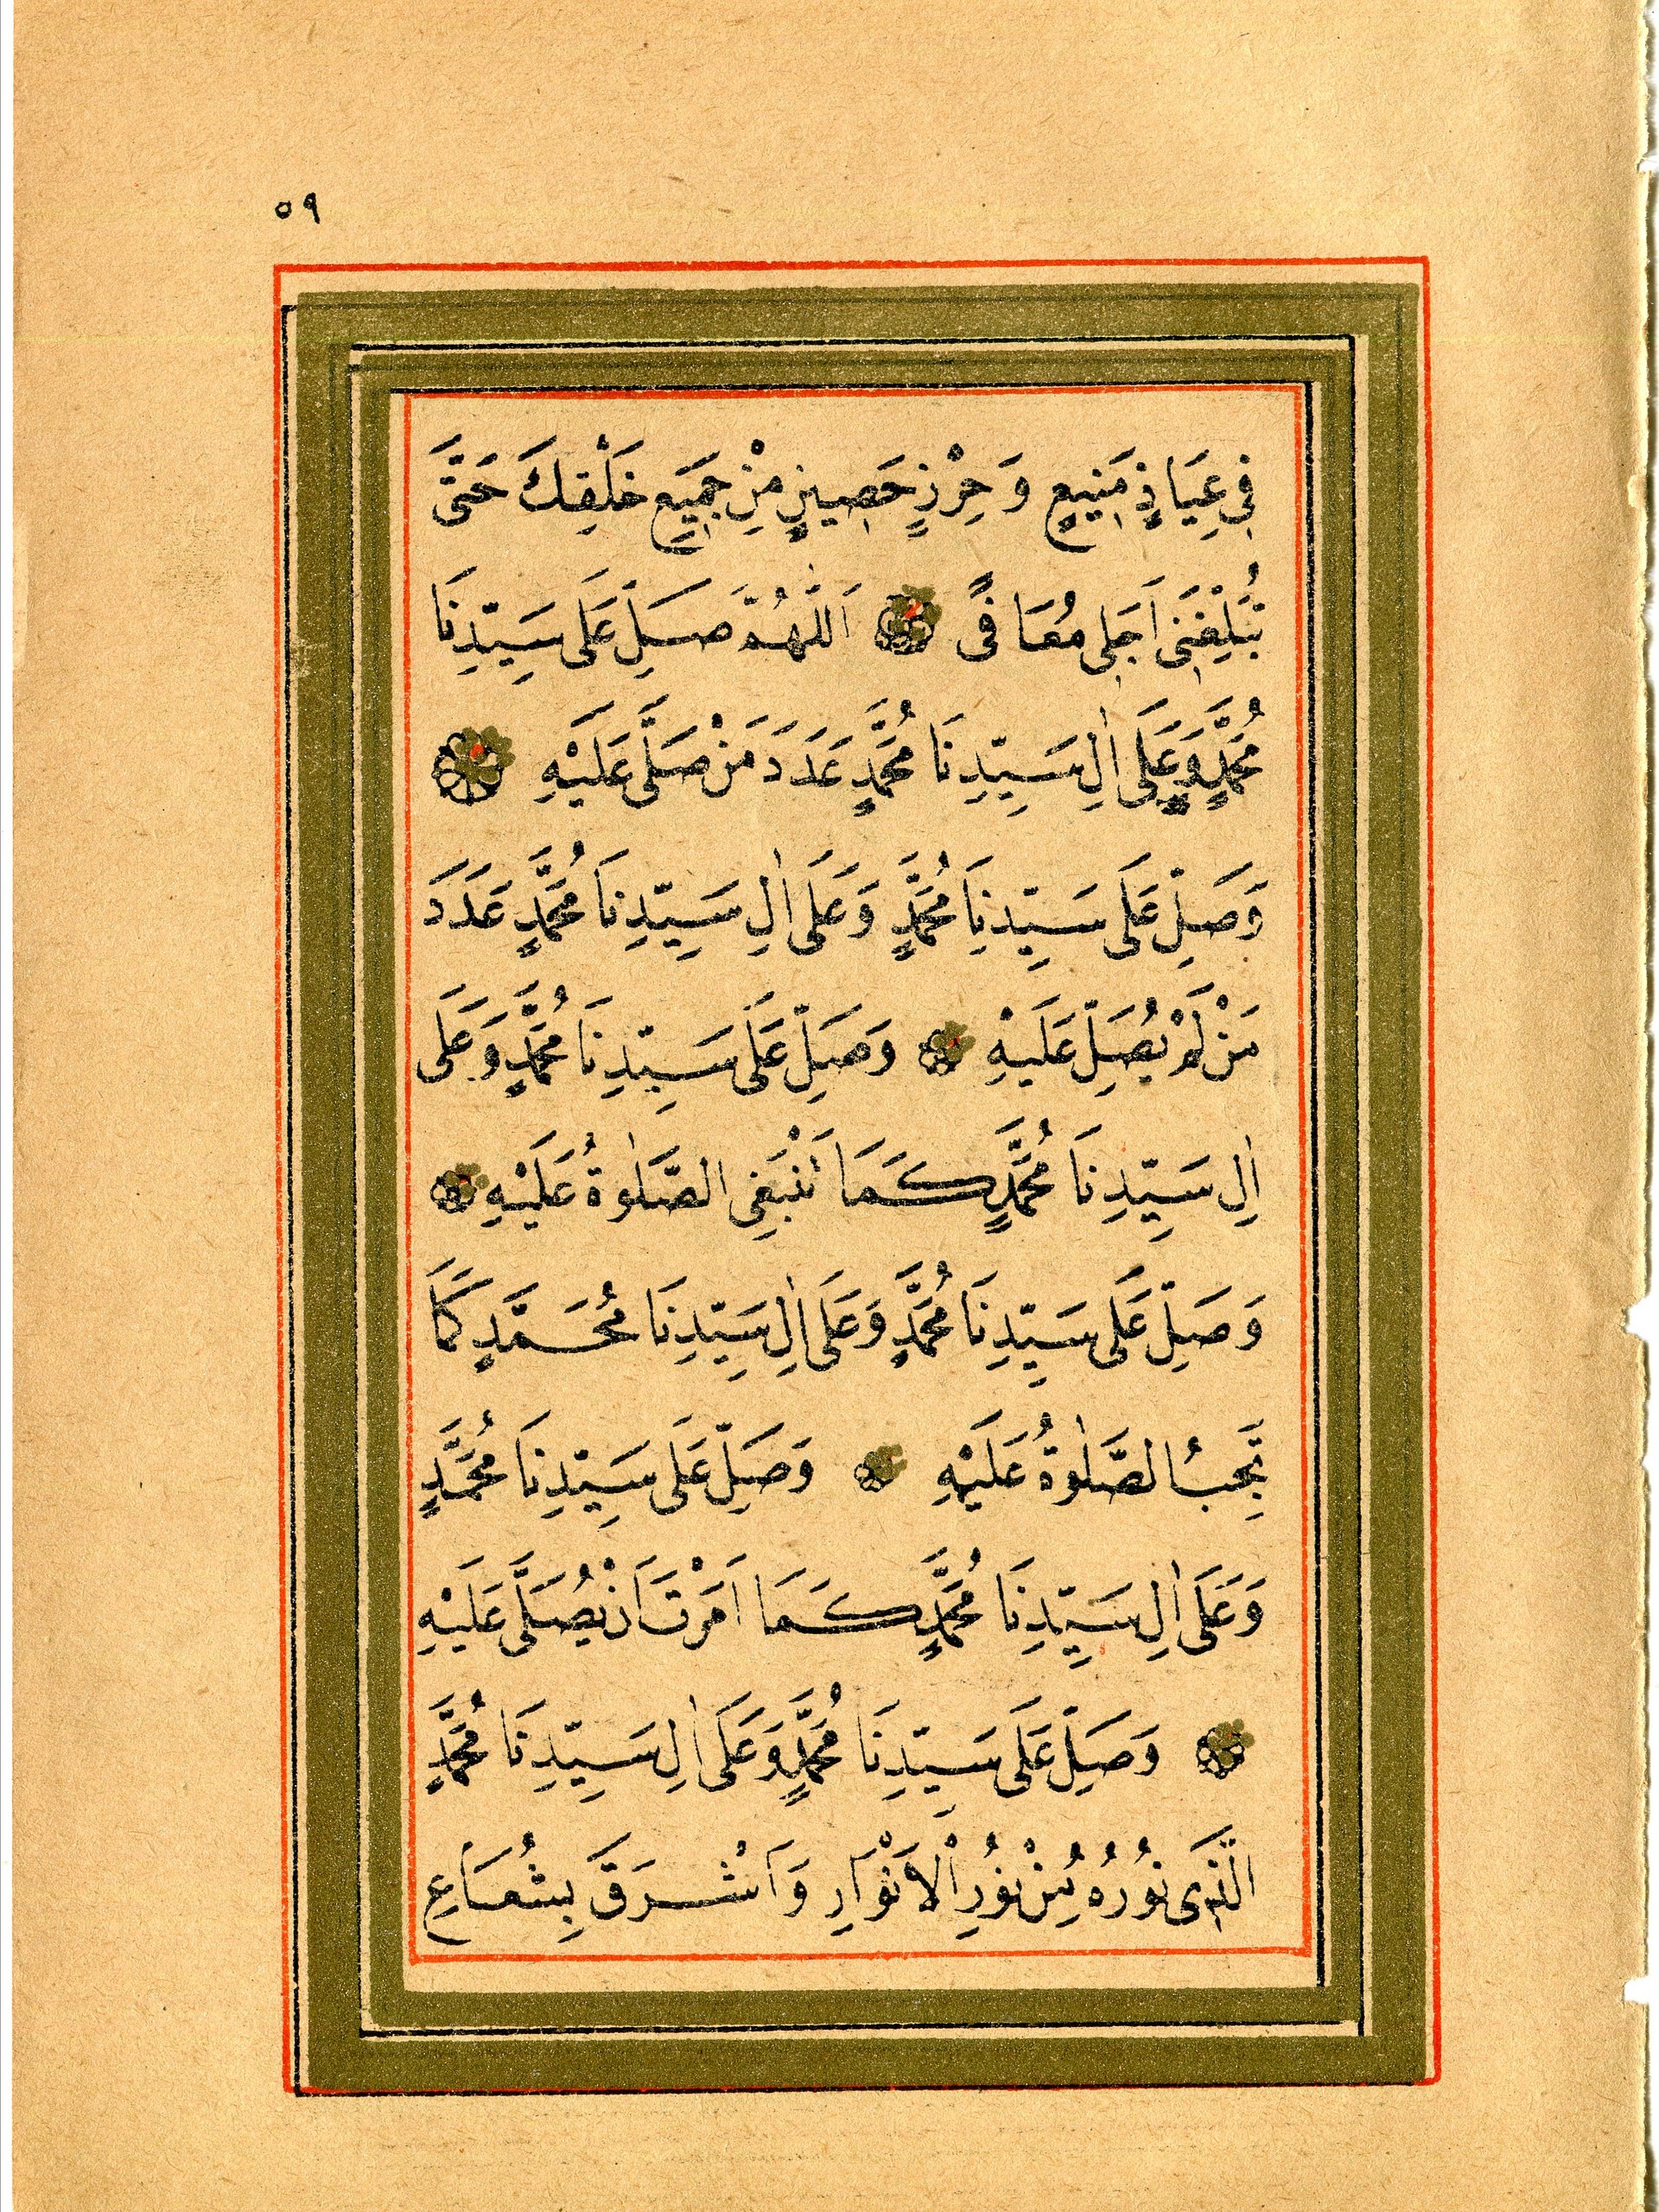 ٥٩
فِي عِيَاذٍ مَنِيعٍ وَحِرْزٍ حَصِينٍ مِنْ جَمِيعِ خَلْقِكَ حَتّٰى
تُبَلِّغَنِى اَجَلِى مُعَافًى اَللّٰهُمَّ صَلِّ عَلَى سَيِّدِنَا
مُحَمَّدٍ وَعَلَى اٰلِ سَيِّدِنَا مُحَمَّدٍ عَدَدَ مَنْ صَلَّى عَلَيْهِ
وَصَلِّ عَلَى سَيِّدِنَا مُحَمَّدٍ وَعَلَى اٰلِ سَيِّدِنَا مُحَمَّدٍ عَدَدَ
مَنْ لَمْ يُصَلِّ عَلَيْهِ وَصَلِّ عَلَى سَيِّدِنَا مُحَمَّدٍ وَعَلَى
اٰلِ سَيِّدِنَا مُحَمَّدٍ كَمَا تَنْبَغِى الصَّلٰوةُ عَلَيْهِ
وَصَلِّ عَلَى سَيِّدِنَا مُحَمَّدٍ وَعَلَى اٰلِ سَيِّدِنَا مُحَمَّدٍ كَمَا
تَجِبُ الصَّلٰوةُ عَلَيْهِ وَصَلِّ عَلَى سَيِّدِنَا مُحَمَّدٍ
وَعَلَى اٰلِ سَيِّدِنَا مُحَمَّدٍ كَمَا اَمَرْتَ اَنْ يُصَلَّى عَلَيْهِ
وَصَلِّ عَلَى سَيِّدِنَا مُحَمَّدٍ وَعَلَى اٰلِ سَيِّدِنَا مُحَمَّدٍ
الَّذِى نُورُهُ مِنْ نُورِ الْاَنْوَارِ وَاَشْرَقَ بِشُعَاعِ